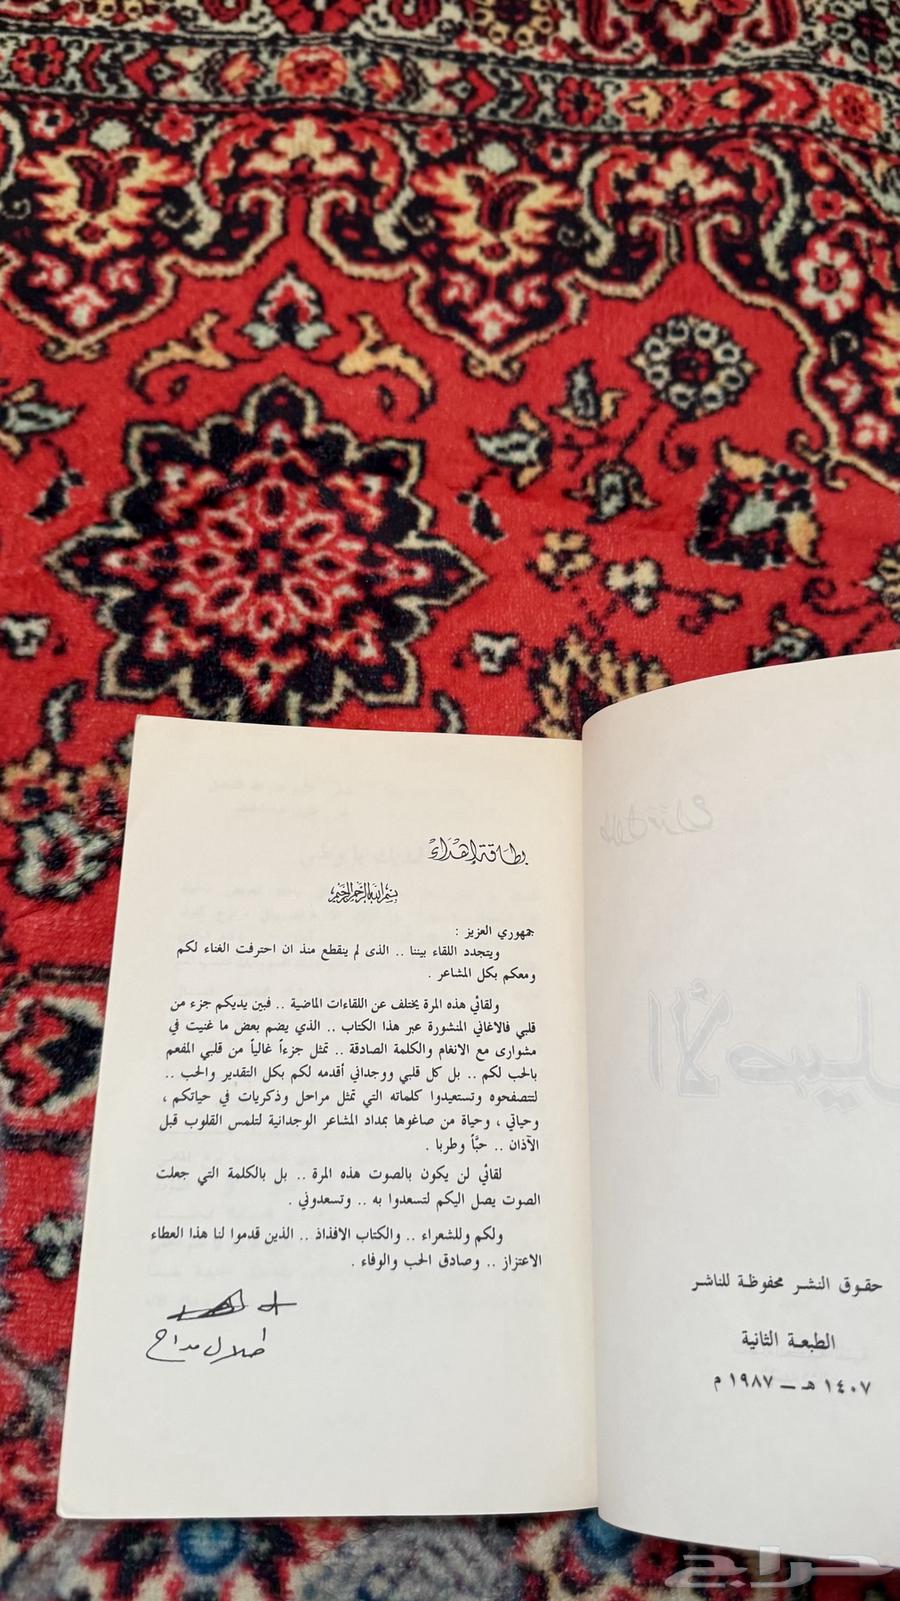 حقوق النشر محفوظة للناشر
الطبعة الثانية
١٤٠٧ هـ ــ ١٩٨٧ م
بطاقة إهداء
بسم الله الرحمن الرحيم
جمهوري العزيز :
ويتجدد اللقاء بيننا .. الذى لم ينقطع منذ ان احترفت الغناء لكم
ومعكم بكل المشاعر .
ولقائي هذه المرة يختلف عن اللقاءات الماضية .. فبين يديكم جزء من
قلبي فالاغاني المنشورة عبر هذا الكتاب .. الذي يضم بعض ما غنيت في
مشوارى مع الانغام والكلمة الصادقة .. تمثل جزءاً غالياً من قلبي المفعم
بالحب لكم .. بل كل قلبي ووجداني أقدمه لكم بكل التقدير والحب ..
لتتصفحوه وتستعيدوا كلماته التي تمثل مراحل وذكريات في حياتكم ،
وحياتي ، وحياة من صاغوها بمداد المشاعر الوجدانية لتلمس القلوب قبل
الآذان .. حبّاً وطربا .
لقائي لن يكون بالصوت هذه المرة .. بل بالكلمة التي جعلت
الصوت يصل اليكم لتسعدوا به .. وتسعدوني .
ولكم وللشعراء .. والكتاب الافذاذ .. الذين قدموا لنا هذا العطاء
الاعتزاز .. وصادق الحب والوفاء .
طلال مداح
الأصيل
حراج